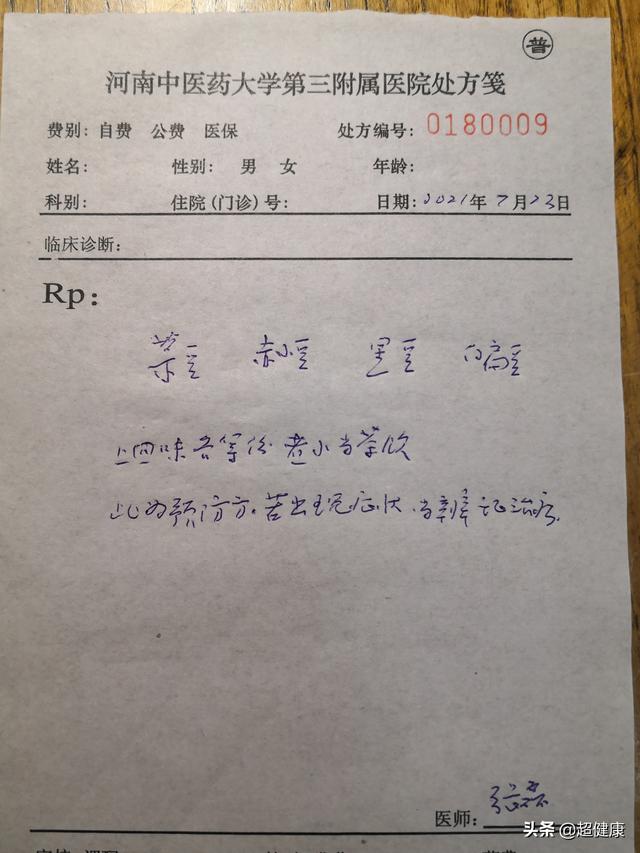 普
河南中医药大学第三附属医院处方笺
费别: 自费 公费 医保 处方编号: 0180009
姓名: 性别: 男 女 年龄:
科别: 住院(门诊)号: 日期: 2021年7月23日
临床诊断:
Rp:
赤小豆 黑豆 白扁豆
上四味各等份 煮水当茶饮
此为预防方。若出现症状,当辨证治疗。
医师: 张磊
头条 @超健康